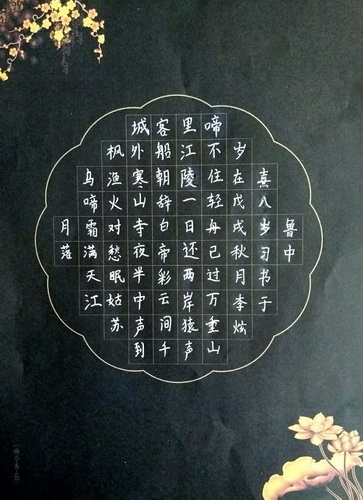 月落
乌啼霜满天江
枫渔火对愁眠姑苏
城外寒山寺夜半中声到
客船朝辞白帝彩云间千
里江陵一日还两岸猿声
啼不住轻舟已过万重山
岁在戊戌秋月李炫
熹八岁习书于
鲁中